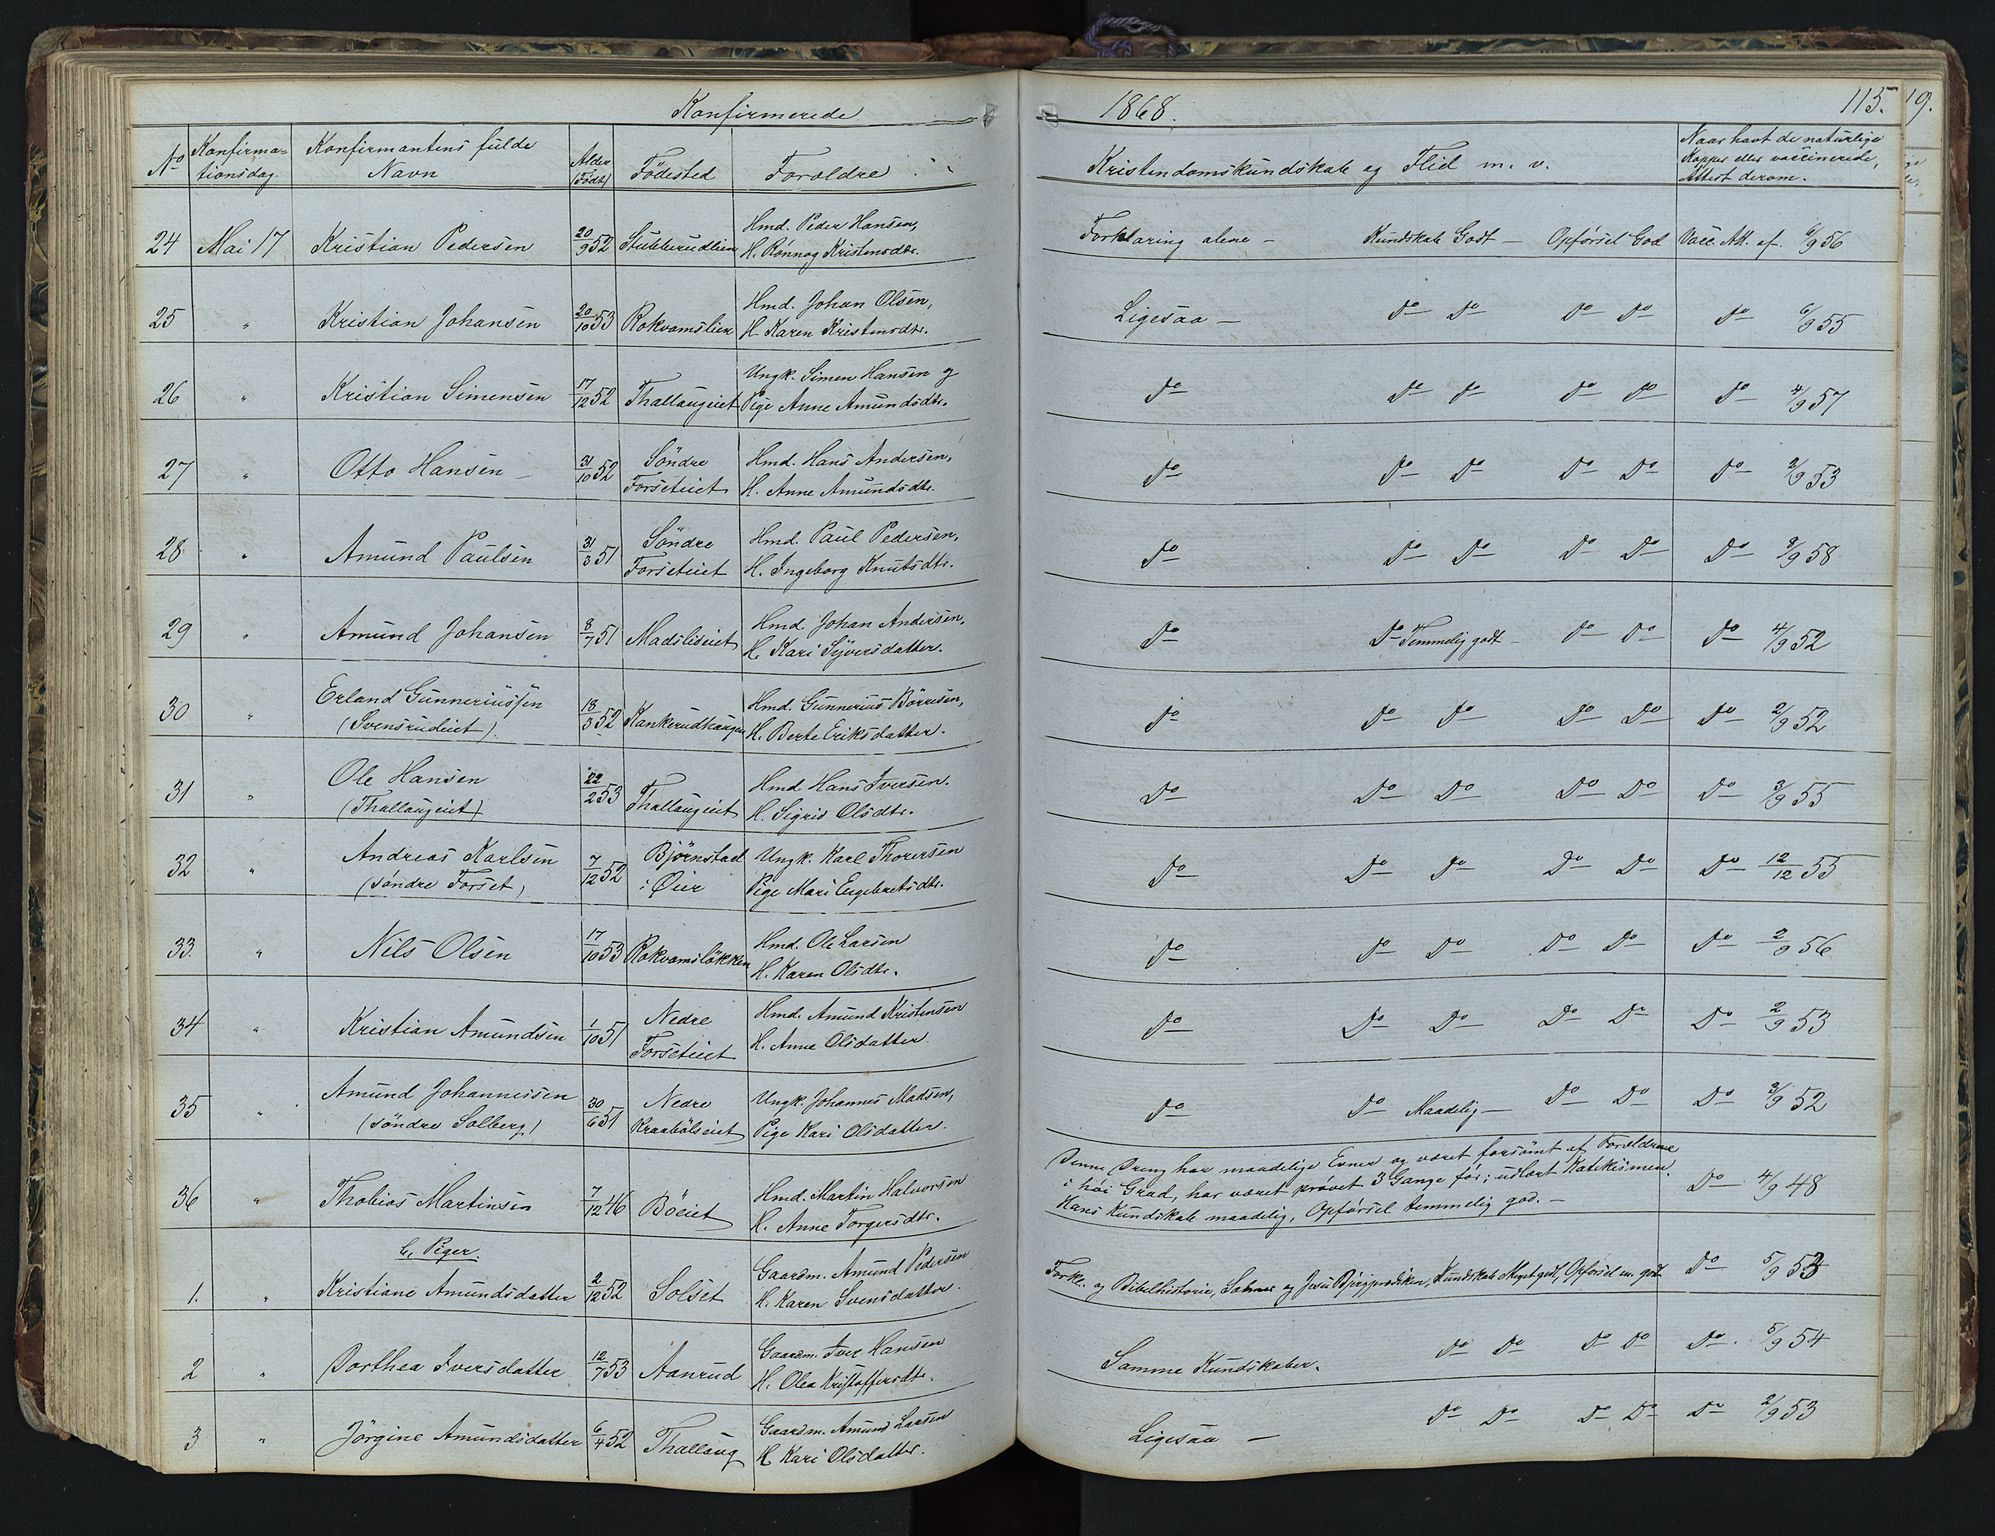 Konfirmerede 1868. 115. 19.
No Konfirma= tionsdag. Konfirmantens fulde Navn Alder (Født) Fødested Forældre Kristendomskundskab og Flid m. v. Naar havt de naturlige Kopper eller vaccinerede, Attest derom.
24 Mai 17 Kristian Pedersen 20/9 52 Stubberudlien Hmd. Peder Hansen, H. Rønnog Kristensdtr. Forklaring alene – Kundskab Godt – Opførsel God Vacc. Att. af. 6/9 56
25 " Kristian Johansen 20/10 53 Rokvamslien Hmd. Johan Olsen, H. Karen Kristensdtr. Ligesaa – Do Do Do Do Do 6/9 55
26 " Kristian Simensen 17/12 52 Thallaugeiet Ungk. Simen Hansen og Pige Anne Amundsdtr. Do Do Do Do Do Do 4/9 57
27 " Otto Hansen – 31/10 52 Søndre Forseteiet Hmd. Hans Andersen, H. Anne Amundsdtr. Do Do Do Do Do Do 2/9 53
28 " Amund Paulsen 31/3 51 Søndre Forseteiet Hmd. Paul Pedersen, H. Ingeborg Knutsdtr. Do Do Do Do Do Do 2/9 58
29 " Amund Johansen 8/7 51 Madslieiet Hmd. Johan Andersen, H. Kari Syversdatter. Do Do Temmelig godt – Do Do Do 4/9 52
30 " Erland Gunneriussen (Svensrudeiet) 18/3 52 Kankerudhaugen Hmd. Gunnerius Børresen, H. Berte Eriksdatter. Do Do Do Do Do Do 2/9 52
31 " Ole Hansen (Thallaugeiet) 22/2 53 Thallaugeiet Hmd. Hans Iversen. H. Sigrid Olsdtr. Do Do Do Do Do Do 3/9 55
32 " Andreas Karlsen (søndre Forset) 7/12 52 Bjørnstad i Øier Ungk. Karl Thoresen Pige Mari Engebretsdtr. Do Do Do Do Do Do 12/12 55
33. " Nils Olsen 17/10 53 Rokvamsløkken Hmd. Ole Larsen H. Karen Olsdtr. Do Do Do Do Do Do 2/9 56
34 " Kristian Amundsen 1/10 51 Nedre Forseteiet Hmd. Amund Kristensen H. Anne Olsdatter Do Do Do Do Do Do 2/9 53
35 " Amund Johannessen (søndre Solberg) 30/6 51 Nedre Kraabølseiet Ungk. Johannes Madsen, Pige Kari Olsdatter. Do Do Maadelig – Do Do Do 3/9 52
36 " Thobias Martinsen 7/12 46 Bøeiet Hmd. Martin Halvorsen H. Anne Torgersdtr. Denne Dreng har maadelige Evner og været forsømt af Forældrene i høi Grad, har været prøvet 3 Gange før; udlært Katekismen. Hans Kundskab maadelig, Opførsel temmelig god. – Do 4/9 48
b, Piger.
1. " Kristiane Amundsdatter 2/12 52 Solset Gaardm. Amund Pedersen H. Karen Svensdatter. Forkl. og Bibelhistorie, Salmer og Jesu Bjergprædiken, Kundskab Meget godt, Opførsel m. god Do 5/9 53
2 " Dorthea Iversdatter 12/7 53 Aanrud Gaardm. Iver Hansen H. Olea Kristoffersdtr. Samme Kundskaber. Do Do Do Do Do 5/9 54
3 " Jørgine Amundsdatter 6/4 52 Thallaug Gaardm. Amund Larsen H. Kari Olsdatter. Ligesaa – Do Do Do Do Do 2/9 53